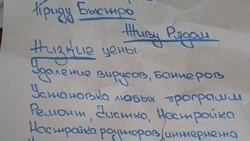 Приду Быстро
Живу Рядом
Низкие цены
Удаление вирусов, баннеров
Установка любых программ
Ремонт, Чистка, Настройка
Настройка роутеров, интернета